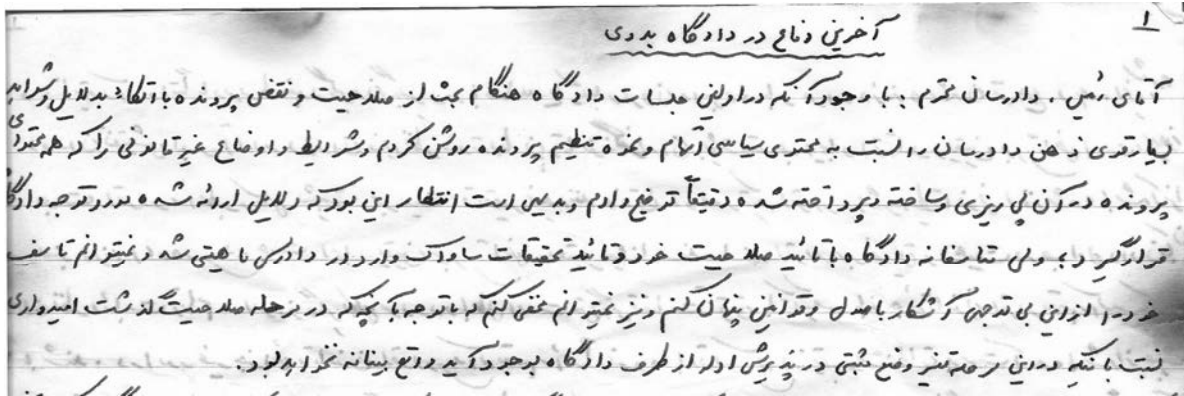 ۱
آخرین دفاع در دادگاه بدوی
آقای رئیس، دادرسان محترم: با وجود آنکه در اولین جلسات دادگاه هنگام بحث از صلاحیت و نقص پرونده با اتکاء بدلایل و شواهد
بسیار قوی ذهن دادرسان را نسبت به محتوی سیاسی اتهام و نحوه تنظیم پرونده روشن کردم و شرایط و اوضاع غیرقانونی را که همه محتوای
پرونده در آن پی ریزی و ساخته و پرداخته شده دقیقاً توضیح دادم و بدیهی است انتظار این بود که دلایل ارائه شده مورد توجه دادگاه
قرار گیرد؛ ولی متاسفانه دادگاه با تائید صلاحیت خود و تائید تحقیقات ساواک وارد در دادرسی ماهیتی شد و نمیتوانم تاسف
خود را از این بی توجهی آشکار باصول و قوانین پنهان کنم و نیز نمیتوانم مخفی کنم که باتوجه بآنچه که در مرحله صلاحیت گذشت امیدواری
نسبت بآنکه در این مرحله تغییر وضع مثبتی در پذیرش ادله از طرف دادگاه بوجود آید واقع بینانه نخواهد بود.